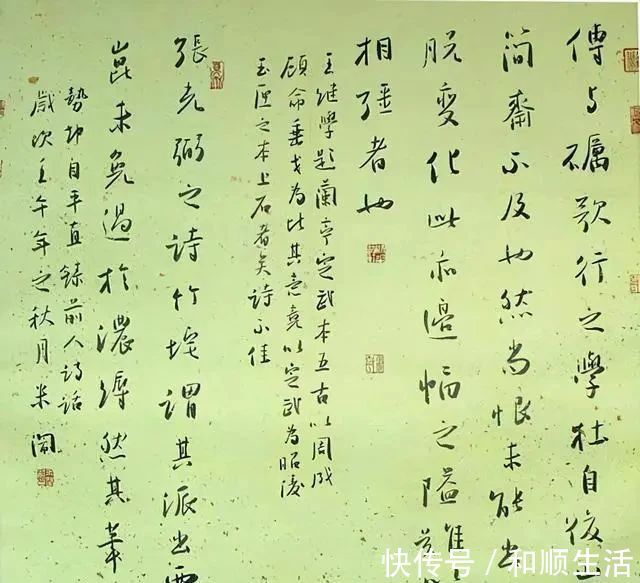 傅与礪歌行之學杜自後
簡齋不及也然尚恨未能
脱變化此亦邊幅之隘
相強者也
王继學題蘭亭定武本五古以周成
顧命垂戈為比其意竟以定武為昭陵
玉匣之本上石者矣诗不佳
張光弼之詩竹垞謂其派出西
崑未免過於濃縟然其
勢却自平直録前人詩話
歲次壬午年之秋月米闹
快传号/和顺生活